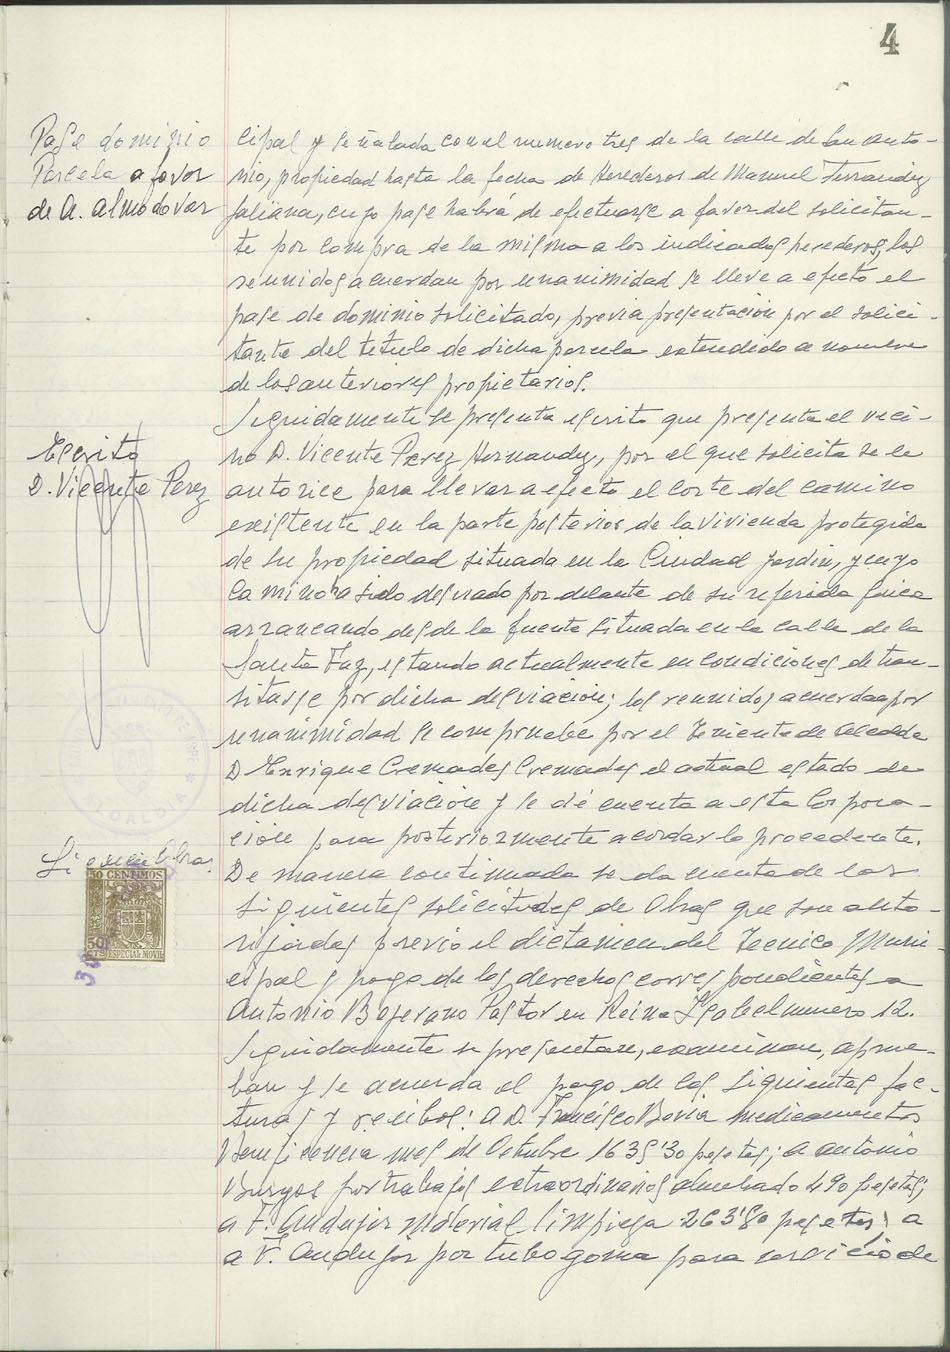 4
Pase dominio
Parcela a favor
de A. Almodóvar
cipal y señalada con el numero tres de la calle de San Anto-
nio, propiedad hasta la fecha de Herederos de Manuel Ferrandiz
Galiana, cuyo pase habrá de efectuarse a favor del solicitan-
te por compra de la misma a los indicados herederos, los
reunidos acuerdan por unanimidad se lleve a efecto el
pase de dominio solicitado, previa presentacion por el solici-
tante del titulo de dicha parcela extendido a nombre
de los anteriores propietarios.
Escrito
D. Vicente Perez
Seguidamente se presenta escrito que presenta el veci-
no D. Vicente Perez Hernandez, por el que solicita se le
autorice para llevar a efecto el corte del camino
existente en la parte posterior de la vivienda protegida
de su propiedad situada en la Ciudad Jardin, y cuyo
camino ha sido desviado por delante de su referida finca
arrancando desde la fuente situada en la calle de la
Santa Faz, estando actualmente en condiciones de tran-
sitarse por dicha desviacion; los reunidos acuerdan por
unanimidad se compruebe por el Teniente de Alcalde
D Enrique Cremades Cremades el actual estado de
dicha desviacion y se dé cuenta a esta Corpora-
cion para posteriormente acordar lo procedente.
ALCALDIA
Licencia Obras
50 CENTIMOS
50
CTS ESPECIAL MOVIL
De manera continuada se da cuenta de las
siguientes solicitudes de Obras que son auto-
rizadas previo el dictamen del Tecnico Muni-
cipal y pago de los derechos correspondientes a
Antonio Bejerano Pastor en Reina Isabel numero 12.
Seguidamente se presentan, examinan, aprue-
ban y se acuerda el pago de las siguientes fac-
turas y recibos: a D. Francisco Bovia medicamentos
Beneficencia mes de Octubre 1635'30 pesetas; a Antonio
Burgos por trabajos extraordinarios alumbrado 490 pesetas;
a F. Andujar material limpieza 263'80 pesetas; a
a F. Andujar por tubo goma para servicio de